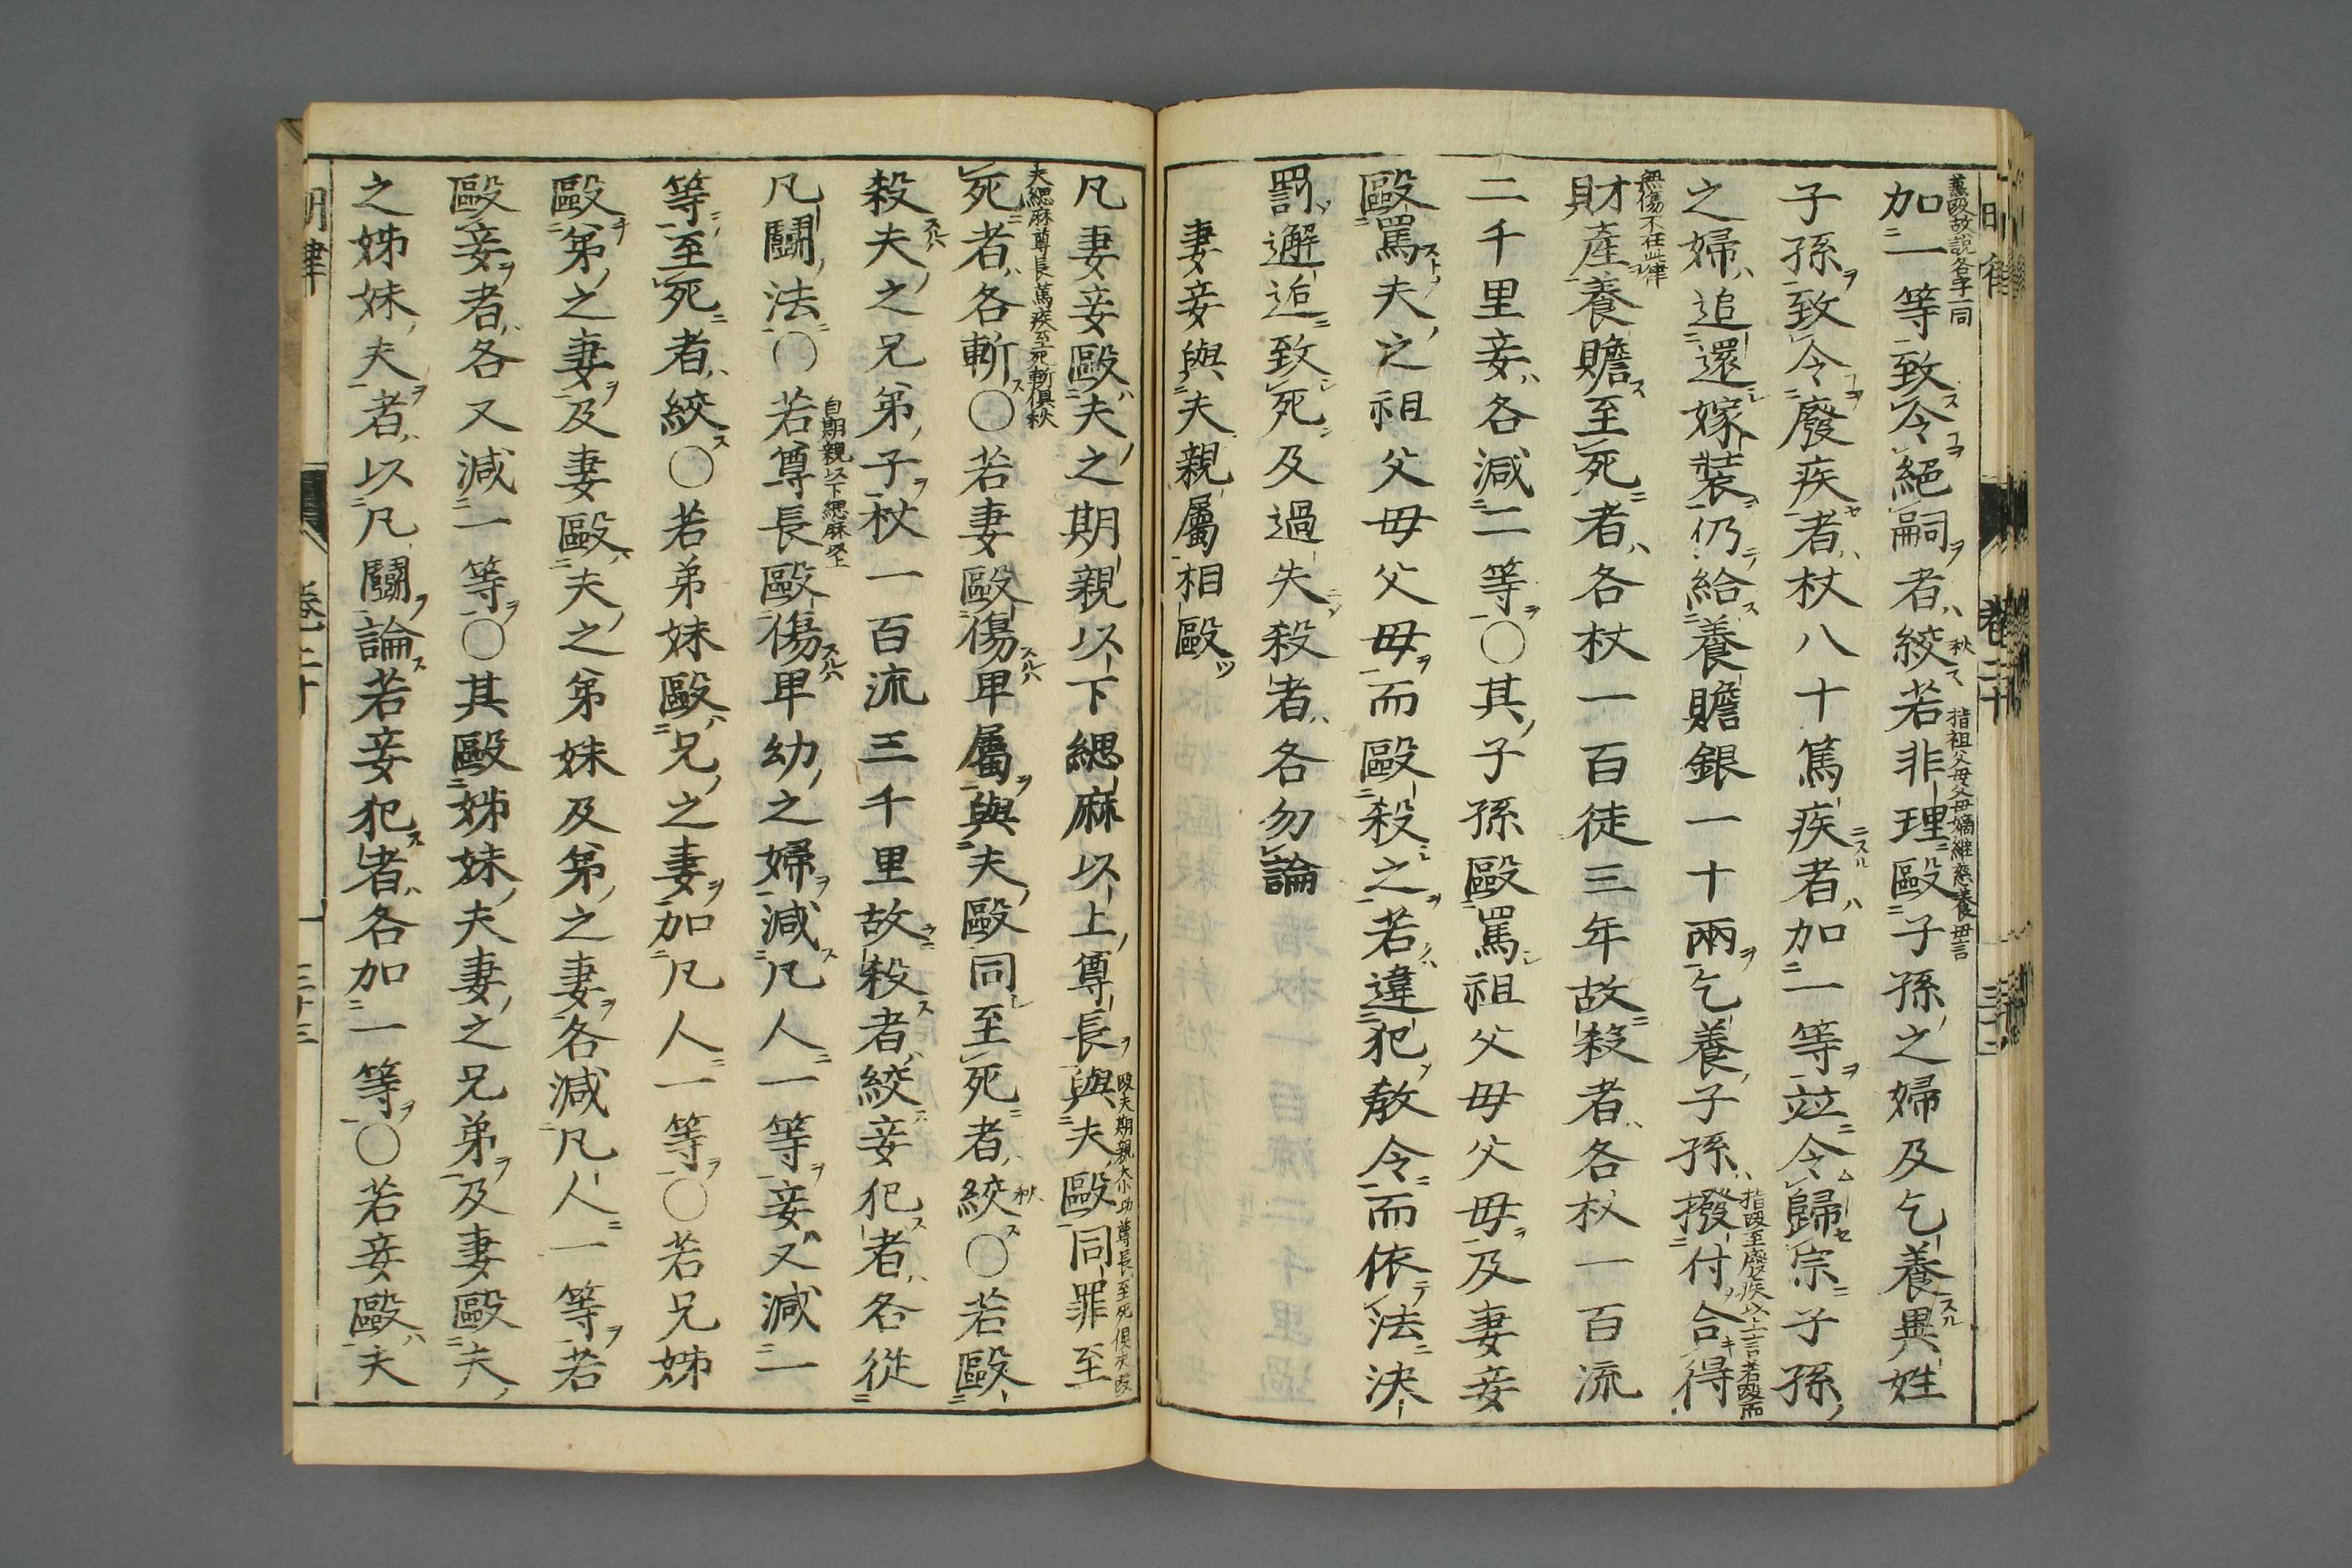 加一等致令絕嗣者絞若非理毆子孫之婦及乞養異姓
子孫致令廢疾者杖八十篤疾者加一等竝令歸宗子孫
之婦追還嫁裝仍給養贍銀一十兩乞養子孫撥付合得
指毆至廢疾以上言若毆而
無傷不在此律
財產養贍至死者各杖一百徒三年故殺者各杖一百流
二千里妾各減二等○其子孫毆罵祖父母父母及妻妾
毆罵夫之祖父母父母而毆殺之若違犯教令而依法決
罰邂逅致死及過失殺者各勿論
妻妾與夫親屬相毆
凡妻妾毆夫之期親以下緦麻以上尊長與夫毆同罪至
夫緦麻尊長篤疾至死斬俱秋
死者各斬○若妻毆傷卑屬與夫毆同至死者絞○若毆
秋
殺夫之兄弟子杖一百流三千里故殺者絞妾犯者各從
凡鬬法○若尊長毆傷卑幼之婦減凡人一等妾又減一
自期親以下緦麻以上
等至死者絞○若弟妹毆兄之妻加凡人一等○若兄姊
毆弟之妻及妻毆夫之弟妹及弟之妻各減凡人一等若
毆妾者各又減一等○其毆姊妹夫妻之兄弟及妻毆夫
之姊妹夫者以凡鬬論若妾犯者各加一等○若妾毆夫
卷二十
三十三